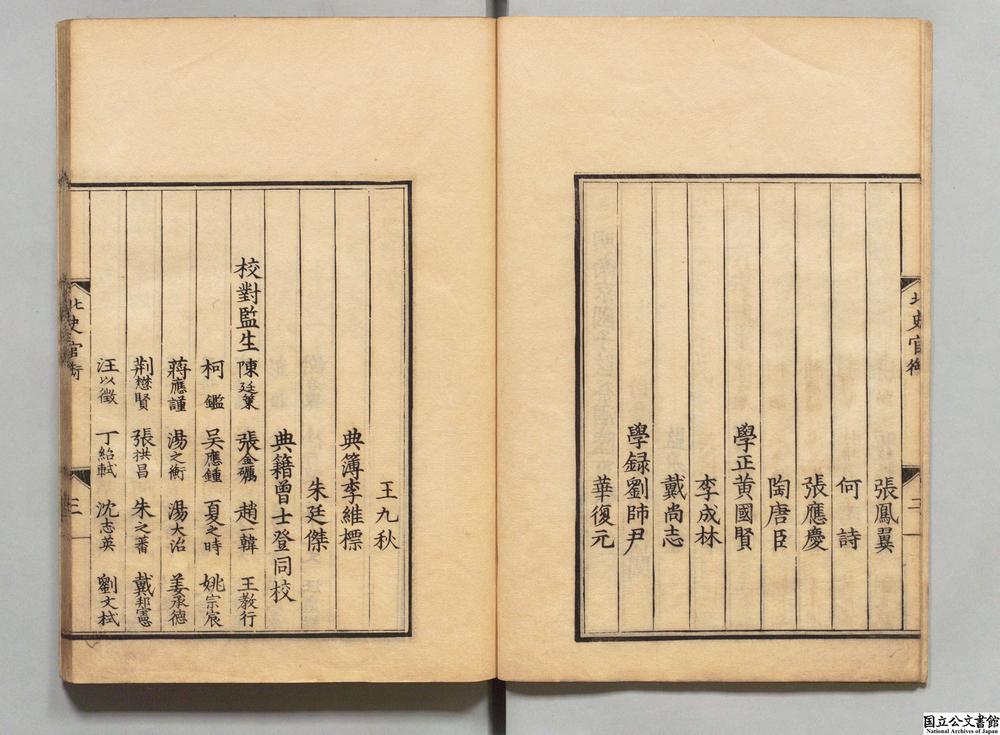 北史官銜
三
張鳳翼
何詩
張應慶
陶唐臣
學正黃國賢
李成林
戴尚志
學録劉師尹
華復元
王九秋
典簿李維標
朱廷傑
典籍曾士登同校
校對監生 陳廷策 張金礪 趙一韓 王教行
柯鑑 吳應鍾 夏之時 姚宗宸
蔣應謹 湯之衡 湯大沼 姜承德
荆懋賢 張拱昌 朱之蕃 戴邦憲
汪以徵 丁紹軾 沈志英 劉文栻
北史官銜
三
国立公文書館
National Archives of Japan